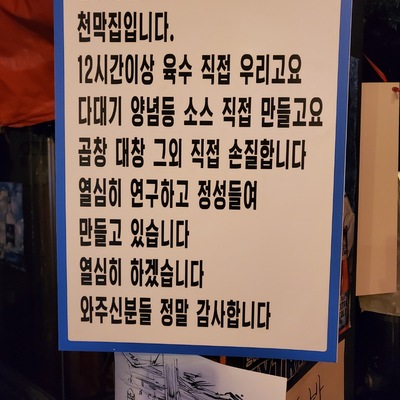 천막집입니다.
12시간이상 육수 직접 우리고요
다대기 양념등 소스 직접 만들고요
곱창 대창 그외 직접 손질합니다
열심히 연구하고 정성들여
만들고 있습니다
열심히 하겠습니다
와주신분들 정말 감사합니다